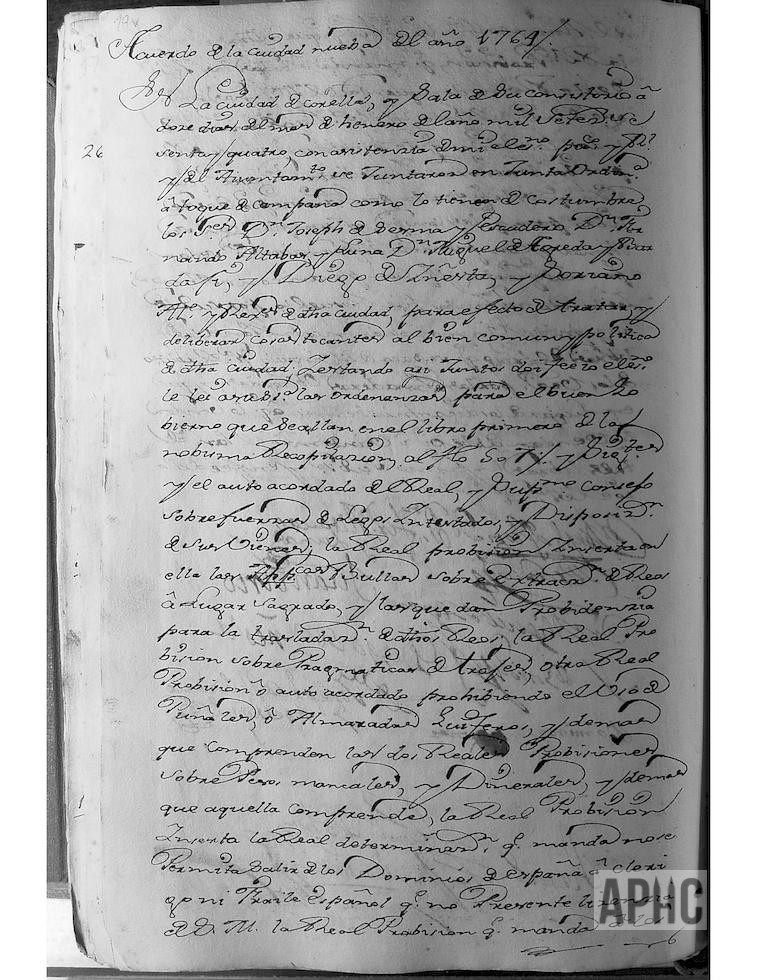 Acuerdo de la ciudad nueba del año 1764
En La ciudad de corella, y Sala de su consistorio â
doze dias del mes de henero del año mil setez.s se
26
senta y quatro, con asistenzia de mi el es.no
y del Auntam.to se Juntaron en Junta Orden.a
â toque de campana como lo tienen de costumbre
los S.res D.n Joseph de Serma y Escudero D.n
nando Altabas y Luna D.n Miguel de Agreda y
y Diego de Yñesta, y Soriano
All.e y Rex.s de dha ciudad, para efecto de tratar y
deliberar cosas tocantes al bien comun y politica
de dha ciudad, Y estando asi Juntos doi fee io el es.no
le lei a su s.a las ordenanzas para el buen Go
bierno que se allan en el libro primero de la
nobisima Recopilazion, al flo 507
y el auto acordado del Real, y Sup.mo consejo
sobre fuerzas de Legos Intestados, y Disposiz.n
de sus Vienes, la Real probision Inserta en
ella las Bullas sobre extracz.n de Reos
â Lugar Sagrado, y las que dan Probidenzia
para la trasladaz.n de dhos Reos, la Real Pro
bision sobre Pragmaticas de trages, otra Real
Probision ô auto acordado prohibiendo el Uso de
Puñales, ô Almaradas y demas
que comprenden las dos Reales Probisiones
sobre Pesos, marcales, y Dinerales, y demas
que aquella comprende, la Real Probision
Inserta la Real determinaz.n q.e manda no se
Permita Salir de los Dominios de españa â cleri
go ni Fraile Español q.e no Presente lizenzia
de S. M. la Real Probision q.e manda
APHC